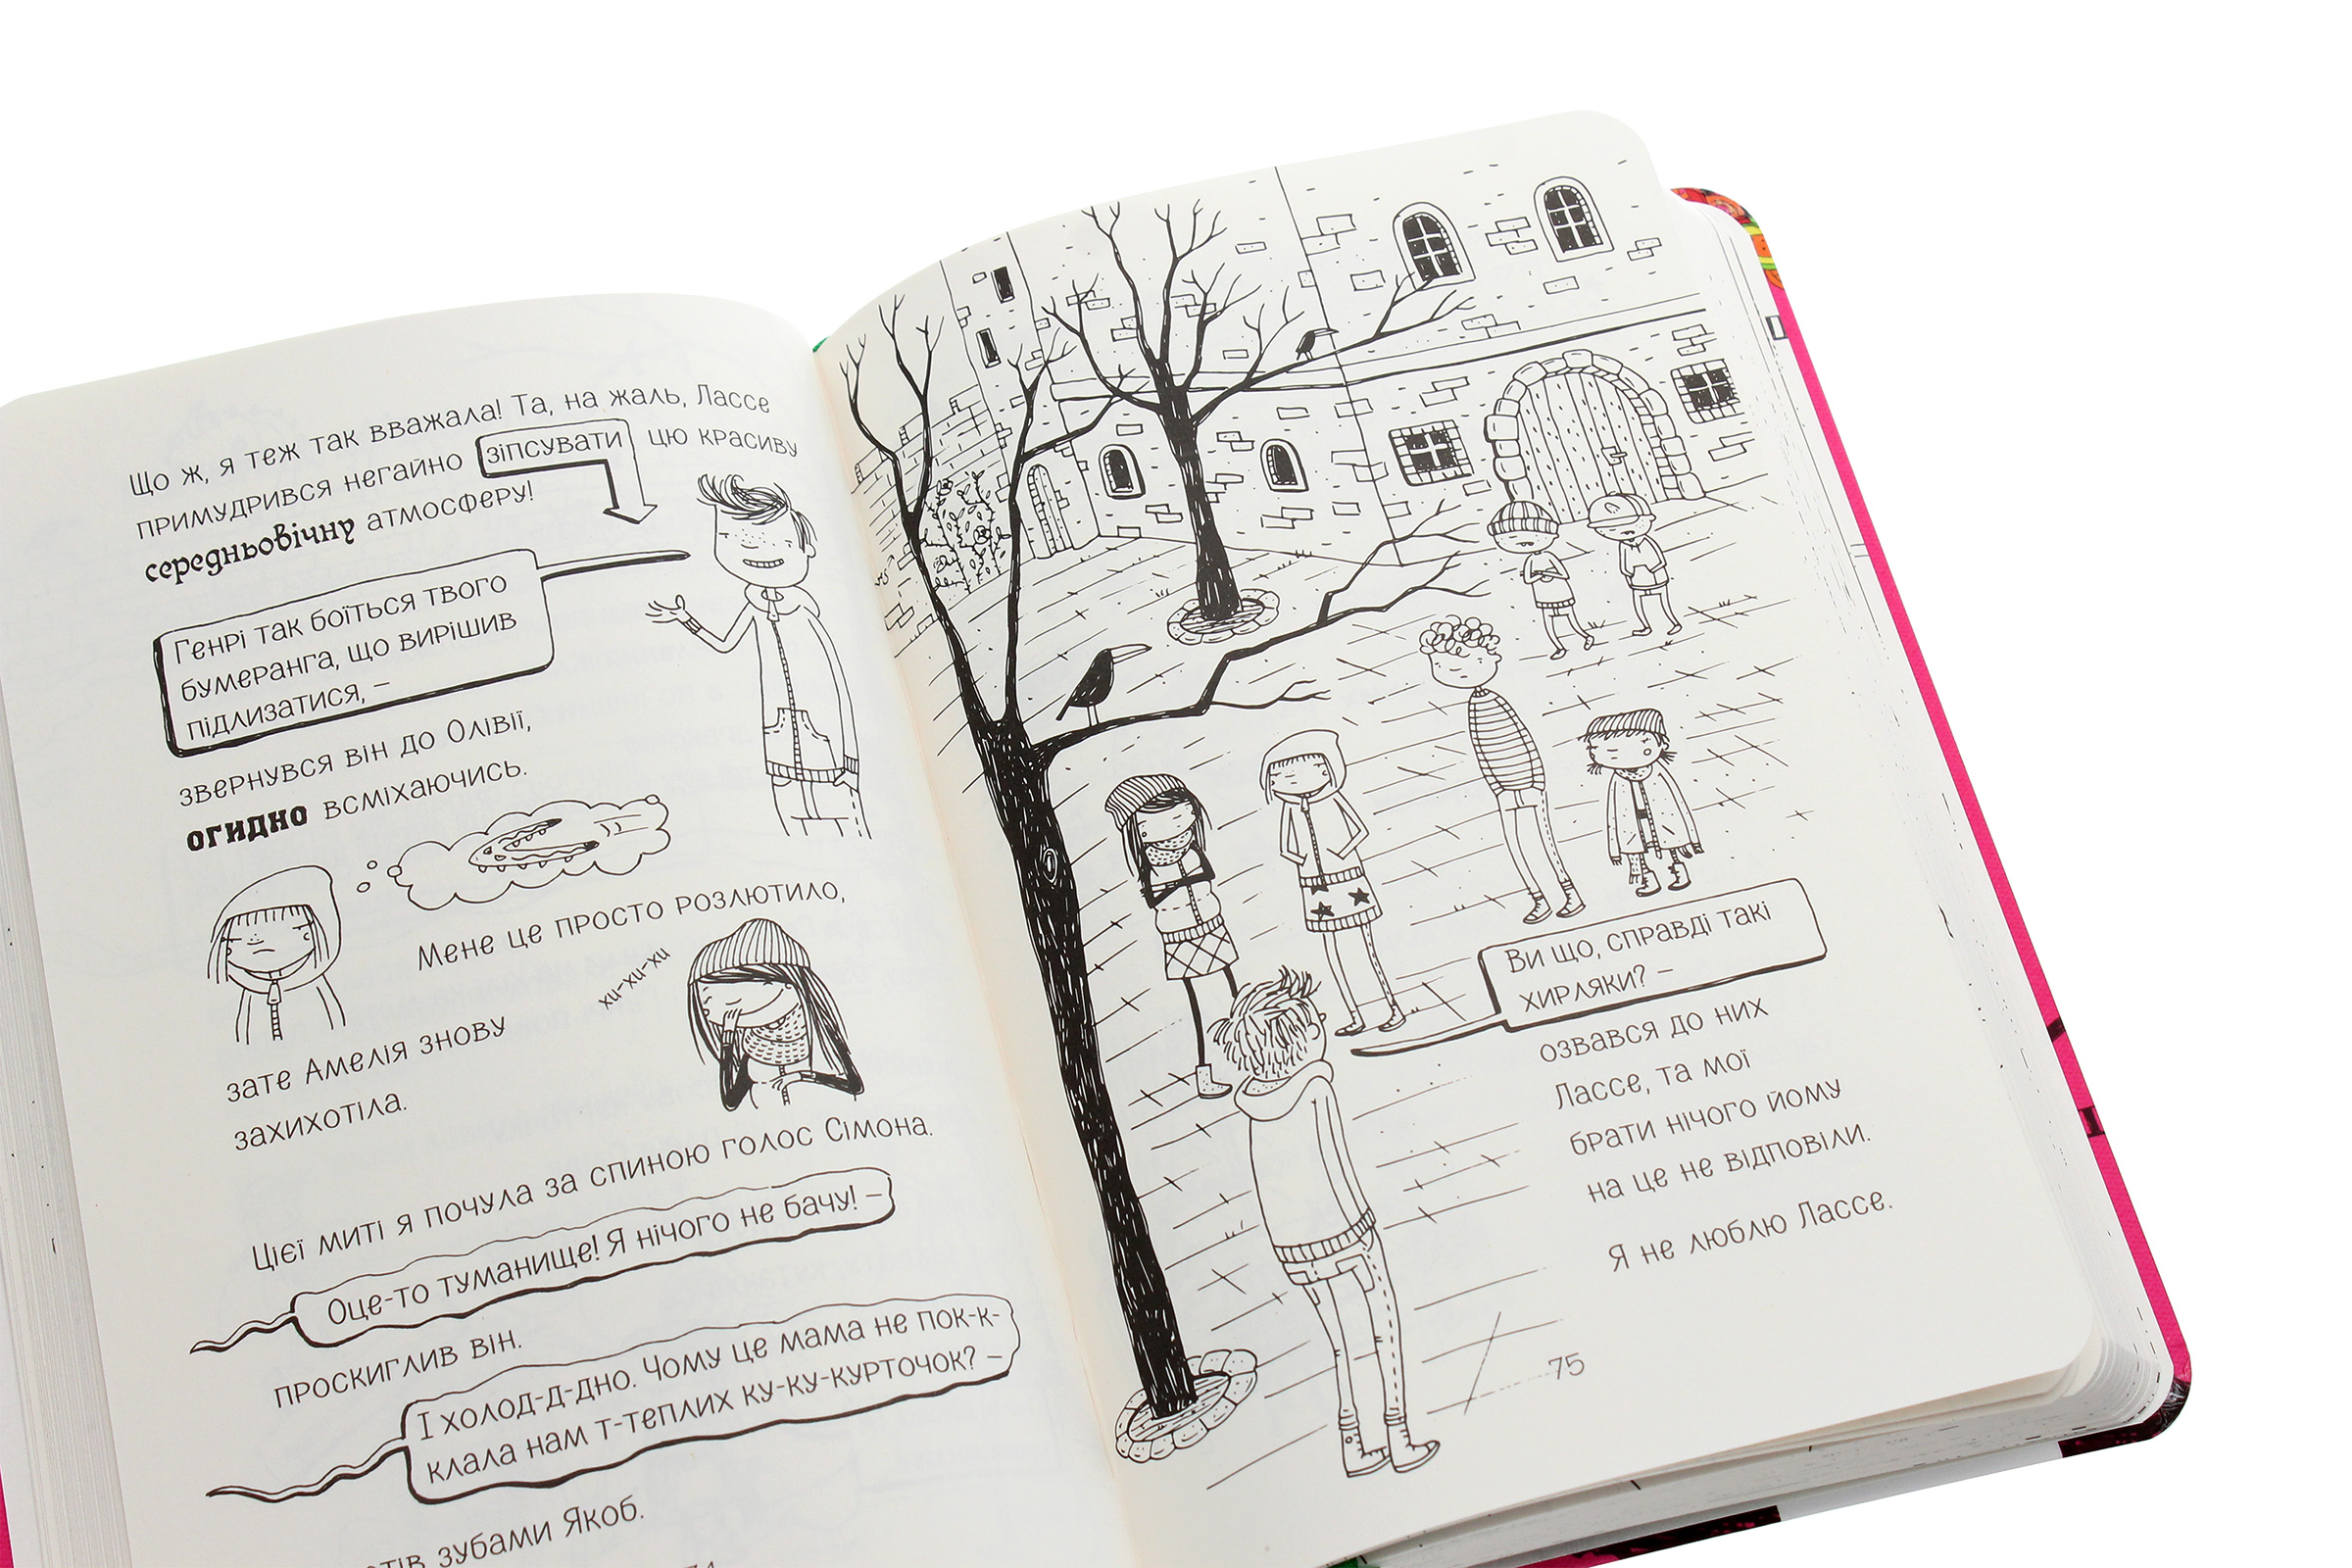 Що ж, я теж так вважала! Та, на жаль, Лассе
примудрився негайно зіпсувати цю красиву
середньовічну атмосферу!
Генрі так боїться твого
бумеранга, що вирішив
підлизатися, –
звернувся він до Олівії,
огидно всміхаючись.
Мене це просто розлютило,
хи-хи-хи
зате Амелія знову
захихотіла.
Цієї миті я почула за спиною голос Сімона.
Оце-то туманище! Я нічого не бачу! –
проскиглив він.
І холод-д-дно. Чому це мама не пок-к-
клала нам т-теплих ку-ку-курточок? –
зубами Якоб.
Ви що, справді такі
хирляки? –
озвався до них
Лассе, та мої
брати нічого йому
на це не відповіли.
Я не люблю Лассе.
75